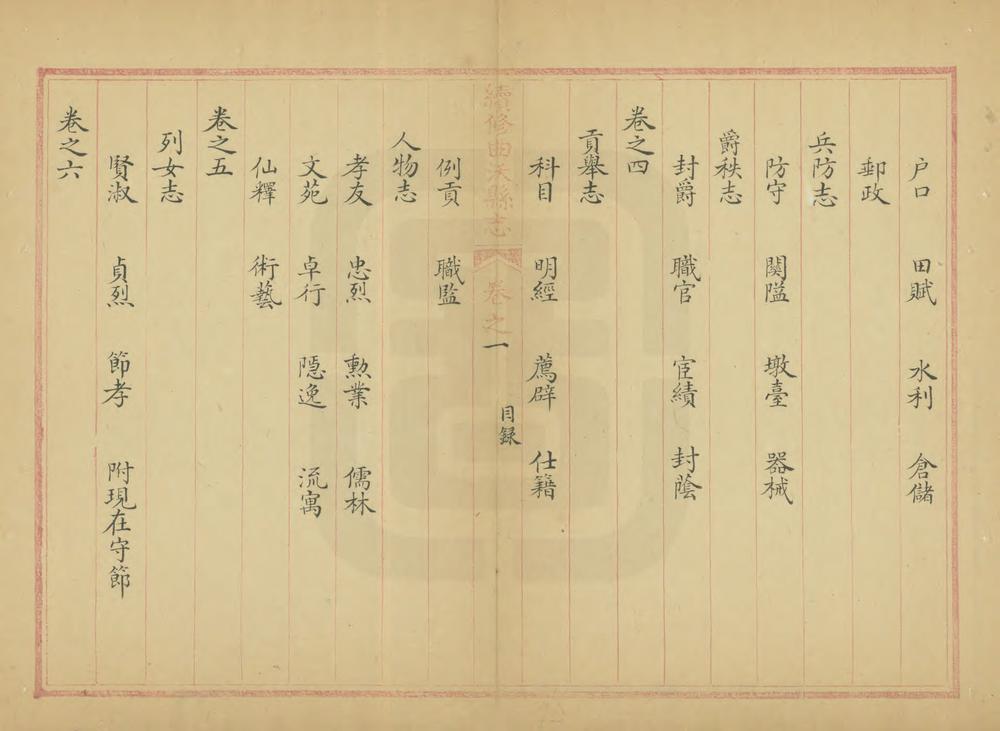 户口 田賦 水利 倉儲
郵政
兵防志
防守 関隘 墩臺 器械
爵秩志
封爵 職官 宦績 封蔭
卷之四
貢舉志
科目 明經 薦辟 仕籍
續修曲沃縣志 卷之一 目錄
例貢 職監
人物志
孝友 忠烈 勲業 儒林
文苑 卓行 隱逸 流寓
仙釋 術藝
卷之五
列女志
賢淑 貞烈 節孝 附現在守節
卷之六